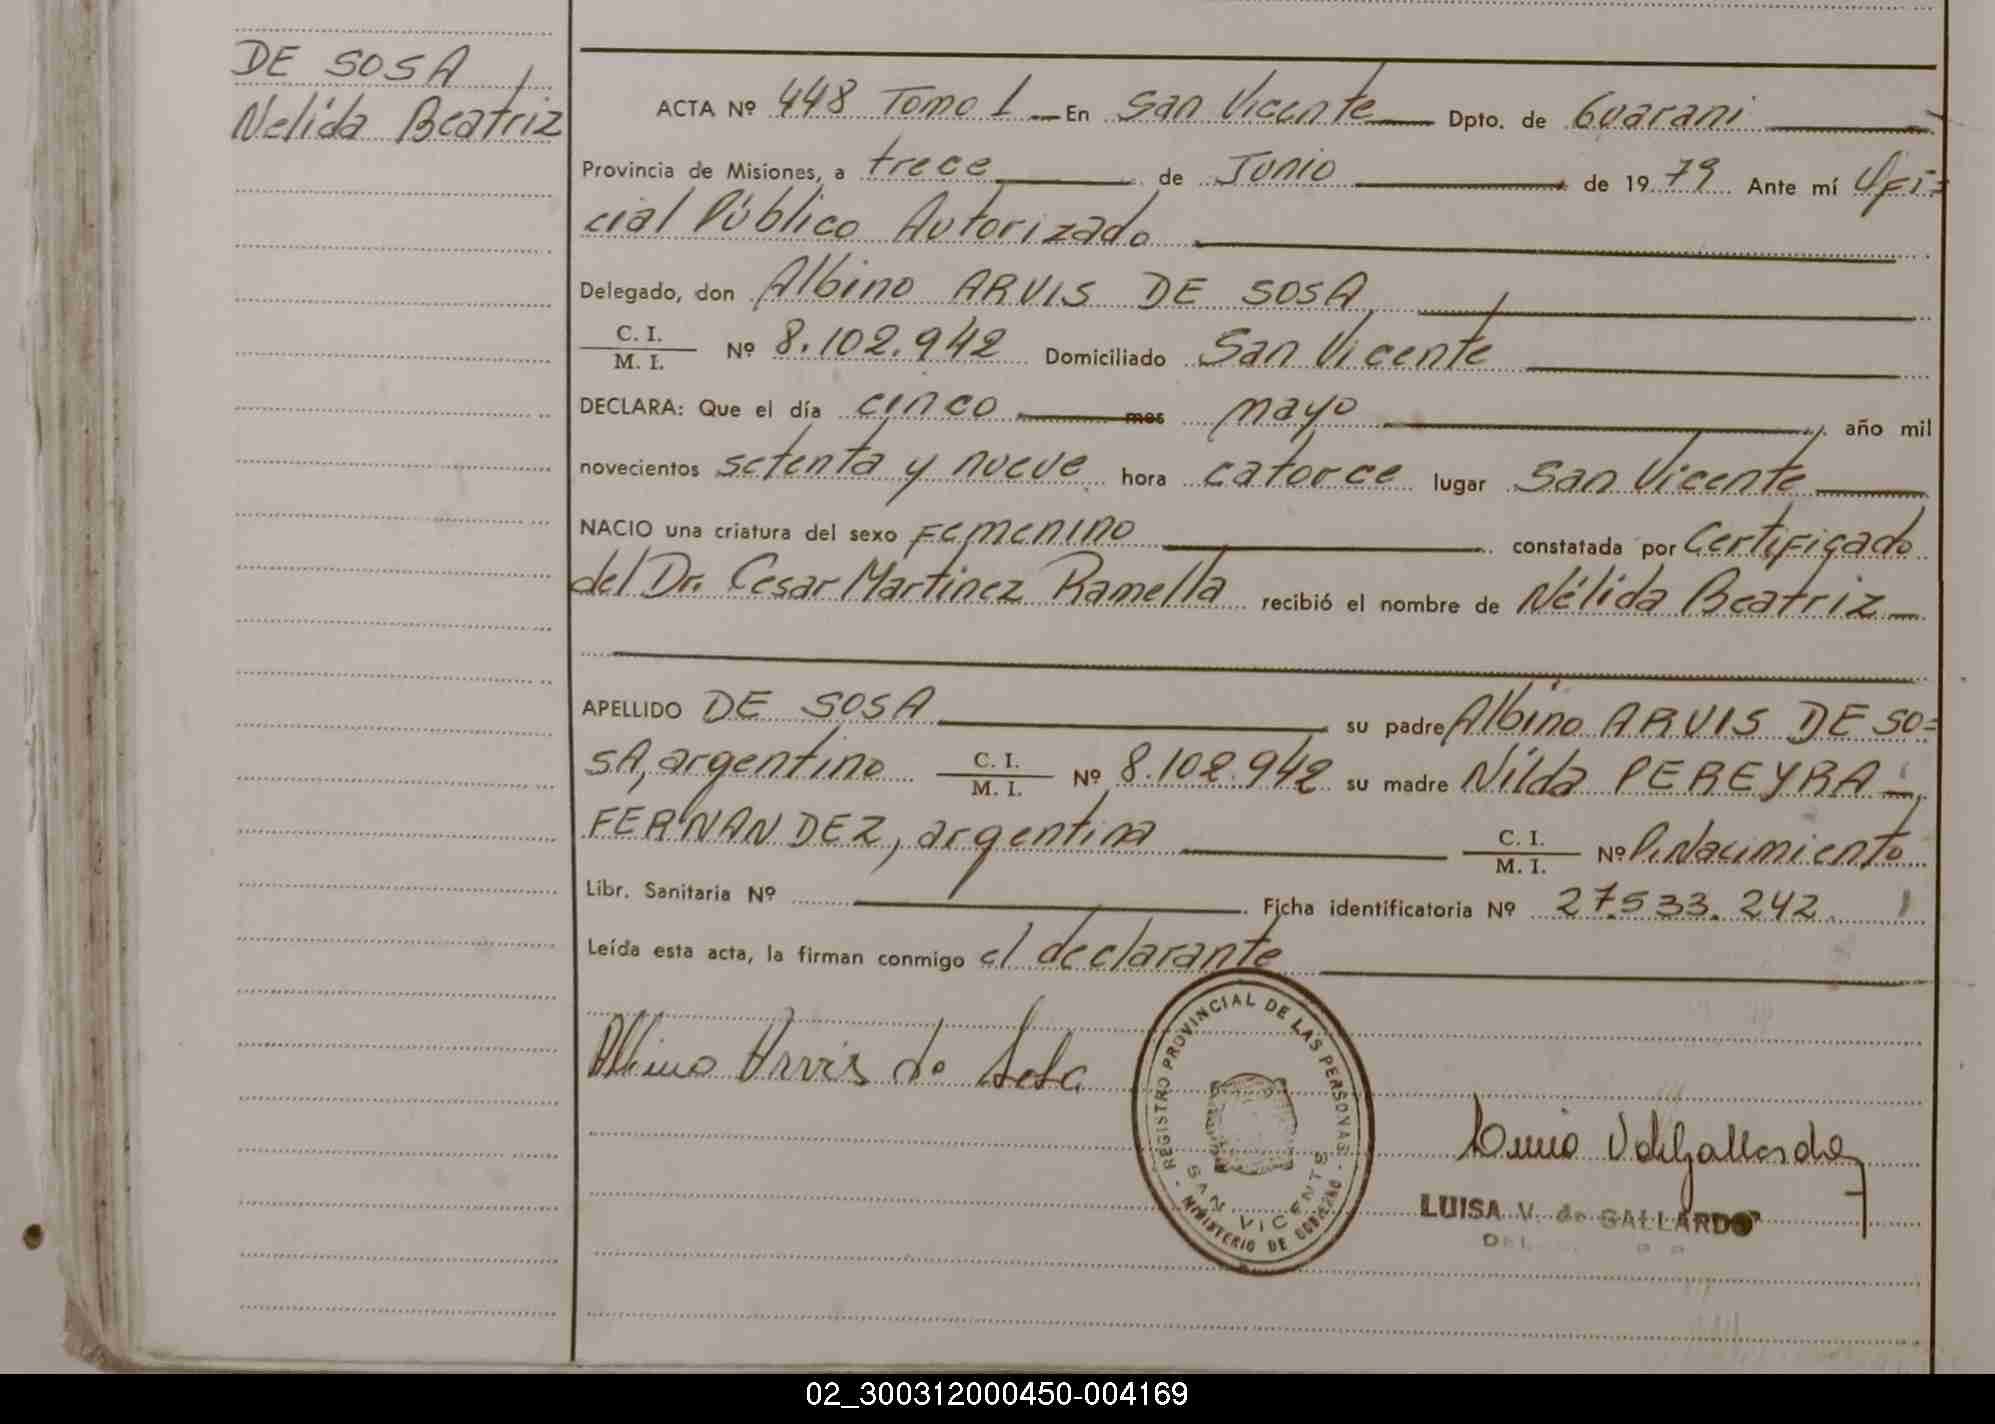 DE SOSA
Nelida Beatriz
ACTA Nº 448 Tomo 1 En San Vicente Dpto. de Guarani
Provincia de Misiones, a trece de Junio de 1979 Ante mí Ofi=
cial Público Autorizado
Delegado, don Albino ARVIS DE SOSA
C. I.
M. I. Nº 8.102.942 Domiciliado San Vicente
DECLARA: Que el día cinco mes mayo año mil
novecientos setenta y nueve hora catorce lugar San Vicente
NACIO una criatura del sexo Femenino constatada por Certificado
del Dr. Cesar Martinez Ramella recibió el nombre de Nélida Beatriz
APELLIDO DE SOSA su padre Albino ARVIS DE SO=
SA, argentino C. I. M. I. Nº 8.102.942 su madre Nilda PEREYRA
FERNANDEZ, argentina C. I. M. I. Nº P. Nacimiento
Libr. Sanitaria Nº Ficha identificatoria Nº 27.533.242
Leída esta acta, la firman conmigo el declarante
Albino Arvis de Sosa
REGISTRO PROVINCIAL DE LAS PERSONAS
SAN VICENTE
MINISTERIO DE GOBIERNO
LUISA V. de GALLARDO
02_300312000450-004169